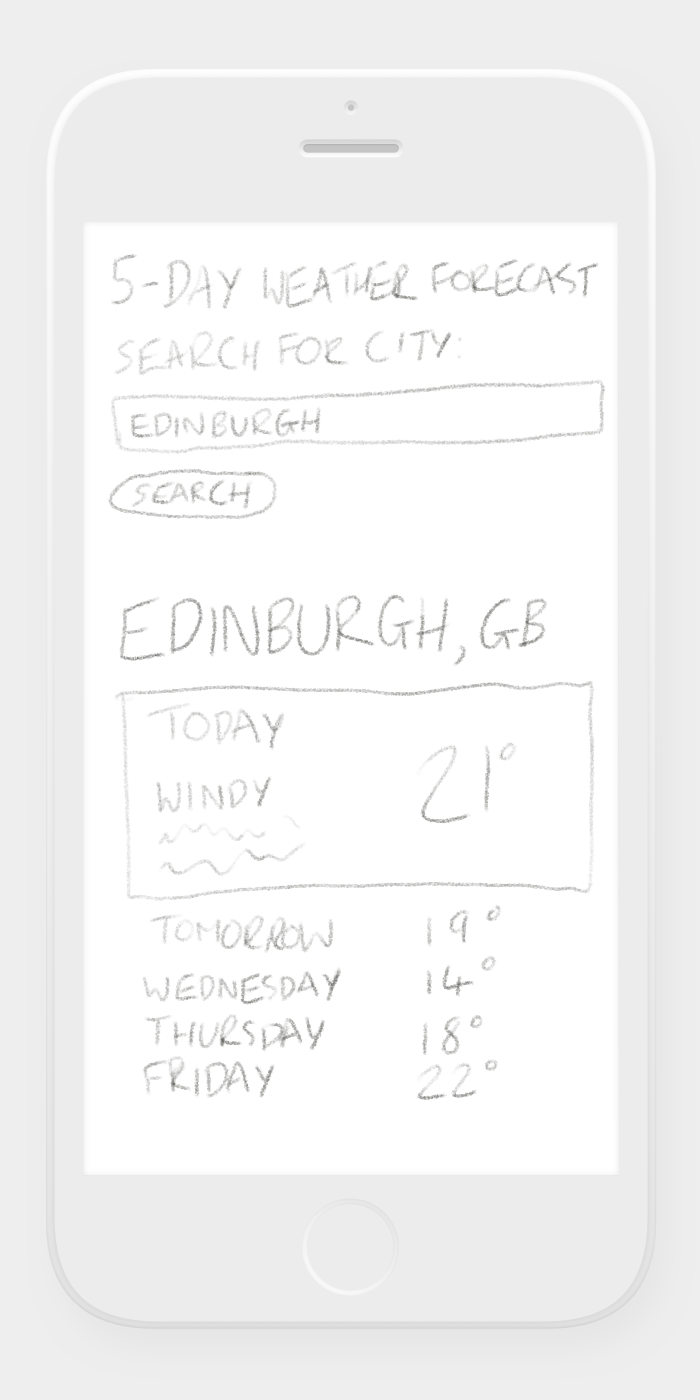 5-DAY WEATHER FORECAST
SEARCH FOR CITY:
EDINBURGH
SEARCH
EDINBURGH, GB
TODAY
WINDY
21°
TOMORROW 19°
WEDNESDAY 14°
THURSDAY 18°
FRIDAY 22°